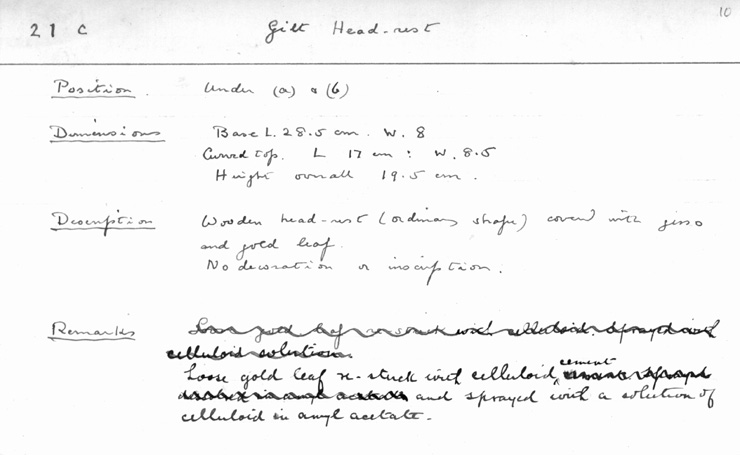 10
21 C Gilt Head-rest
Position. Under (a) & (b)
Dimensions Base L. 28.5 cm. W. 8
Curved top. L 17 cm : W. 8.5
Height overall 19.5 cm.
Description Wooden head-rest (ordinary shape) covered with gesso
and gold leaf.
No decoration or inscription.
Remarks Loose gold leaf re-stuck with celluloid. Sprayed with
celluloid solution
cement
Loose gold leaf re-stuck with celluloid,
and sprayed with a solution of
celluloid in amyl acetate.